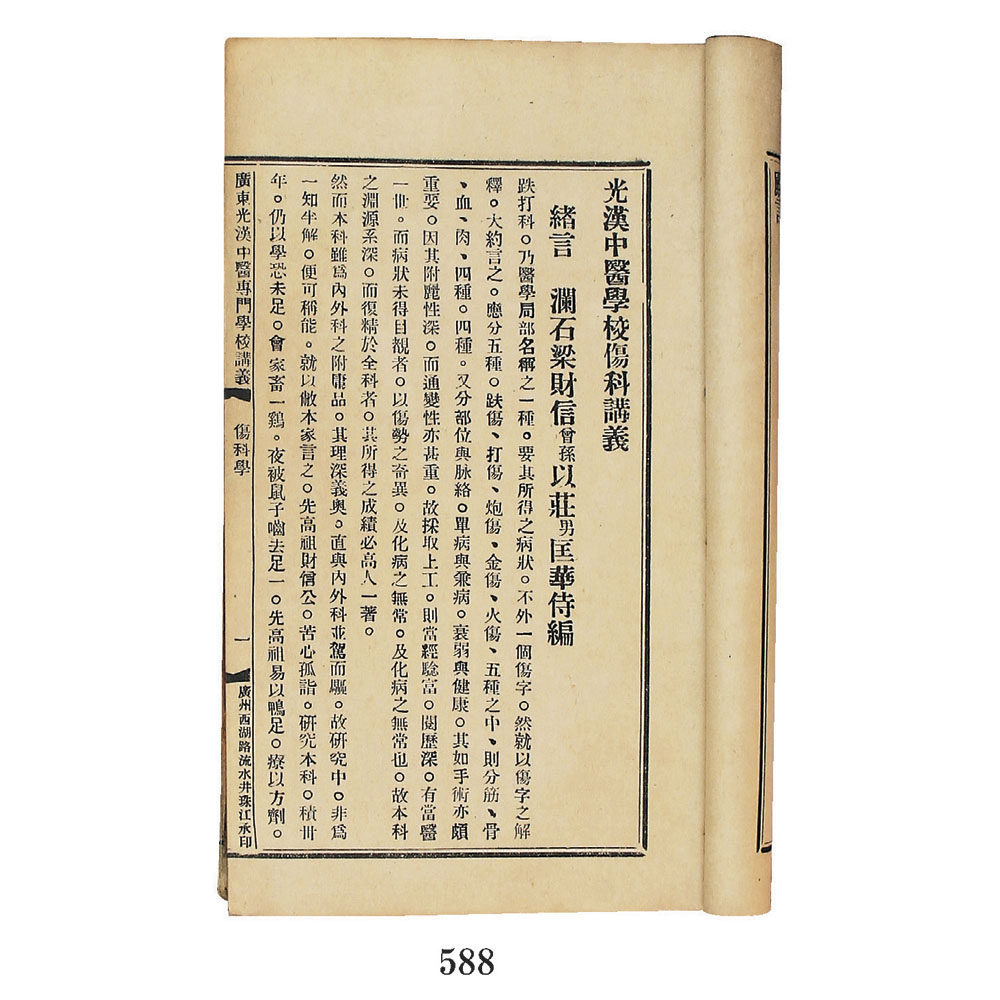 光漢中醫學校傷科講義
緒言　瀾石梁財信曾孫以莊男匡華侍編
跌打科。乃醫學局部名稱之一種。要其所得之病狀。不外一個傷字。然就以傷字之解
釋。大約言之。應分五種。跌傷、打傷、炮傷、金傷、火傷、五種之中、則分筋、骨
、血、肉、四種。四種。又分部位與脉絡。單病與兼病。衰弱與健康。其如手術亦頗
重要。因其附麗性深。而通變性亦甚重。故採取上工。則當經騐富。閱歷深。有當醫
一世。而病狀未得目覩者。以傷勢之奇異。及化病之無常。及化病之無常也。故本科
之淵源系深。而復精於全科者。其所得之成績必高人一著。
然而本科雖爲內外科之附庸品。其理深義奧。直與內外科並駕而驅。故研究中。非爲
一知半解。便可稱能。就以敝本家言之。先高祖財信公。苦心孤詣。研究本科。積卅
年。仍以學恐未足。會家畜一鷄。夜被鼠子嚙去足一。先高祖易以鴨足。療以方劑。
廣東光漢中醫專門學校講義　傷科學　一　廣州西湖路流水井珠江承印
588